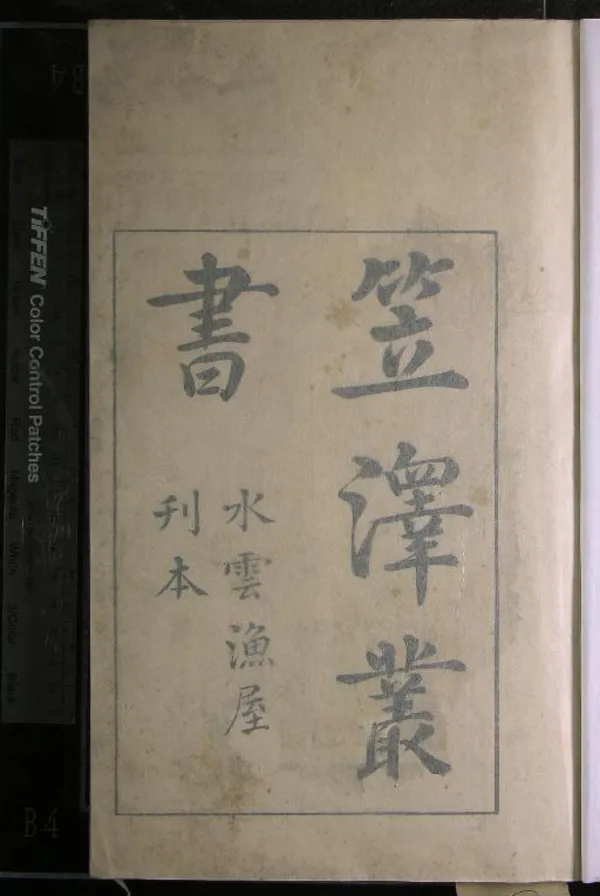 笠澤叢
書
水雲漁屋
刊本
TIFFEN Color Control Patches
B4